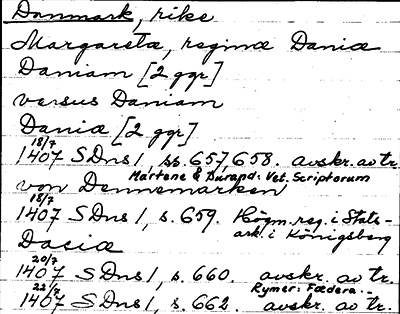 Danmark, rike
Margareta, regina Daniæ
Daniam [2 ggr]
versus Daniam
Daniæ [2 ggr]
18/7
1407 SDns 1, ss. 657, 658. avskr. av tr.
Martene & Durand: Vet. Scriptorum
von Dennemarken
18/7
1407 SDns 1, s. 659. Högm. reg. i Stats-
ark. i Königsberg
Daciæ
20/7
1407 SDns 1, s. 660. avskr. av tr.
Rymer: Fœdera...
22/7
1407 SDns 1, s. 662. avskr. av tr.